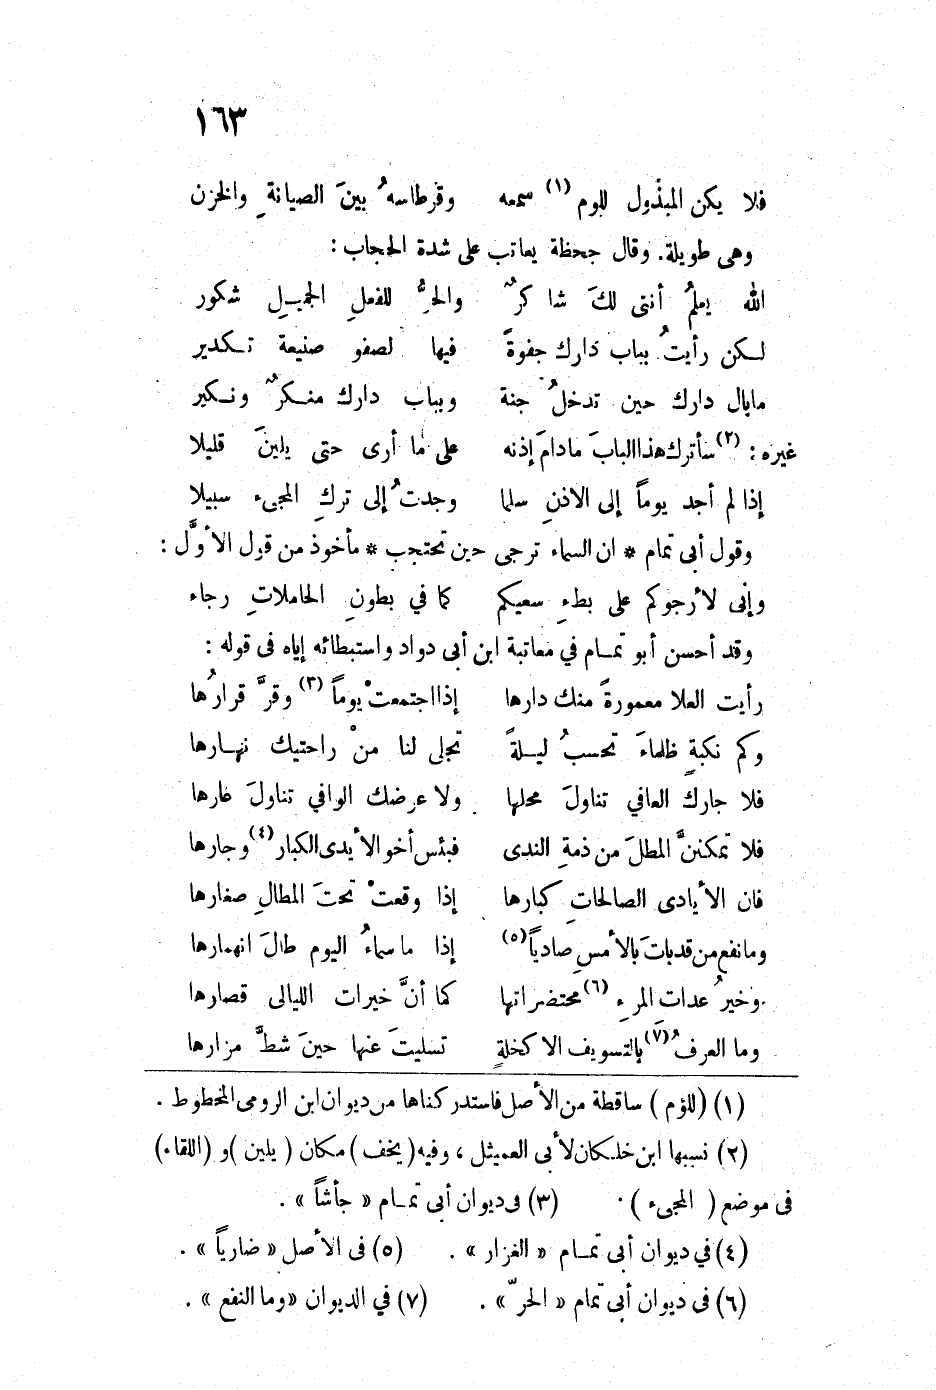 ١٦٣
فلا يكن المبذول للوم (١) سمعه وقرطاسهُ بينَ الصيانةِ والخزن
وهى طويلة. وقال جحظة يعاتب على شدة الحجاب :
الله يعلمُ أنني لكَ شاكرٌ والحرُّ للفعلِ الجميلِ شكور
لكن رأيتُ بباب دارك جفوةً فيها لصفو صنيعة تكدير
مابال دارك حين تدخلُ جنة وبباب دارك منكرٌ ونكير
غيره : (٢) سأترك هذا البابَ مادامَ إذنه على ما أرى حتى يلينَ قليلا
إذا لم أجد يوماً إلى الاذنِ سلما وجدتُ إلى تركِ المجىء سبيلا
وقول أبى تمام * ان السماء ترجى حين تحتجب * مأخوذ من قول الأوَّل :
وإنى لأرجوكم على بطءِ سعيكم كما في بطونِ الحاملاتِ رجاء
وقد أحسن أبو تمام في معاتبة ابن أبى دواد واستبطائه إياه فى قوله :
رأيت العلا معمورةً منك دارها إذا اجتمعتْ يوماً (٣) وقرَّ قرارُها
وكم نكبةٍ ظلماءَ تحسبُ ليلةً تجلى لنا منْ راحتيك نهارها
فلا جارك العافي تناولَ محلها ولا عرضك الوافي تناولَ عارها
فلا تمكننَّ المطلَ من ذمةِ الندى فبئس أخو الأيدى الكبار (٤) وجارها
فان الأيادى الصالحاتِ كبارها إذا وقعتْ تحتَ المطالِ صغارها
وما نفع من قد باتَ بالأمسِ صادياً (٥) إذا ما سماءُ اليوم طالَ انهمارها
وخيرُ عدات المرءِ (٦) محتضراتها كما أنَّ خيرات الليالى قصارها
وما العرفُ (٧) بالتسويف الا كخلةٍ تسليتَ عنها حينَ شطَّ مزارها
(١) (للؤم) ساقطة من الأصل فاستدركناها من ديوان ابن الرومى المخطوط .
(٢) نسبها ابن خلكان لأبى العميثل ، وفيه (يخف) مكان (يلين) و (اللقاء)
فى موضع (المجىء) . (٣) فى ديوان أبى تمام « جأشاً » .
(٤) في ديوان أبى تمام « الغزار » . (٥) فى الأصل « ضارياً » .
(٦) فى ديوان أبى تمام « الحرّ » . (٧) في الديوان «وما النفع» .